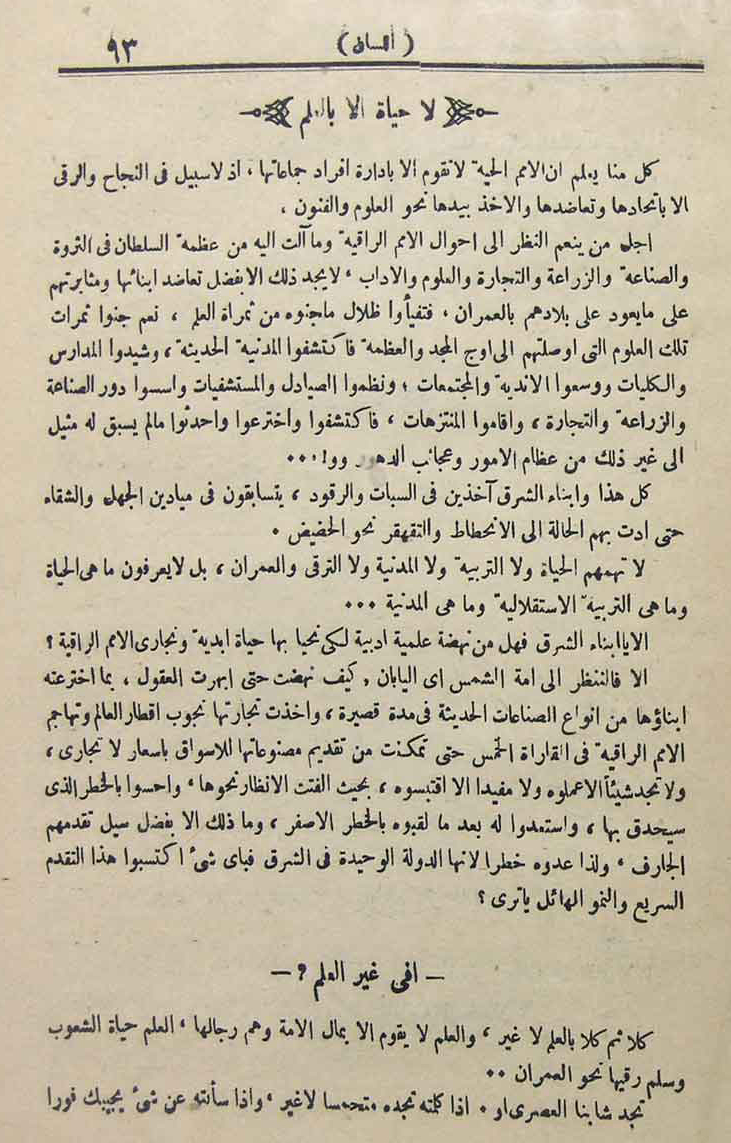 ( اللسان ) ٩٣
لا حياة الا بالعلم
كل منا يعلم ان الامم الحية لا تقوم الا بادارة افراد جماعاتها ، اذ لاسبيل فى النجاح والرقى
الا باتحادها وتعاضدها والاخذ بيدها نحو العلوم والفنون .
اجل من ينعم النظر الى احوال الامم الراقية وما آلت اليه من عظمة السلطان فى الثروة
والصناعة والزراعة والتجارة والعلوم والاداب ، لايجد ذلك الا بفضل تعاضد ابنائها ومثابرتهم
على مايعود على بلادهم بالعمران ، فتفيأوا ظلال ماجنوه من ثمراة العلم ، نعم جنوا ثمرات
تلك العلوم التى اوصلتهم الى اوج المجد والعظمة فاكتشفوا المدنية الحديثة ، وشيدوا المدارس
والكليات ووسعوا الاندية والمجتمعات ؛ ونظموا الصيادل والمستشفيات واسسوا دور الصناعة
والزراعة والتجارة ، واقاموا المنتزهات ، فاكتشفوا واخترعوا واحدثوا مالم يسبق له مثيل
الى غير ذلك من عظام الامور وعجائب الدهور ووا ...
كل هذا وابناء الشرق آخذين فى السبات والرقود ، يتسابقون فى ميادين الجهل والشقاء
حتى ادت بهم الحالة الى الانحطاط والتقهقر نحو الحضيض .
لا تهمهم الحياة ولا التربية ولا المدنية ولا الترقى والعمران ، بل لايعرفون ما هى الحياة
وما هى التربية الاستقلالية وما هى المدنية ...
الا يا ابناء الشرق فهل من نهضة علمية ادبية لكى نحيا بها حياة ابدية ونجارى الامم الراقية ؟
الا فالننظر الى امة الشمس اى اليابان , كيف نهضت حتى ابهرت العقول ، بما اخترعته
ابناؤها من انواع الصناعات الحديثة فى مدة قصيرة ، واخذت تجارتها تجوب اقطار العالم وتهاجم
الامم الراقية فى القاراة الخمس حتى تمكنت من تقديم مصنوعاتها للاسواق باسعار لا تجارى ،
ولا تجد شيئاً الا عملوه ولا مفيدا الا اقتبسوه ، بحيث الفتت الانظار نحوها ، واحسوا بالخطر الذى
سيحدق بها ، واستعدوا له بعد ما لقبوه بالخطر الاصفر ، وما ذلك الا بفضل سيل تقدمهم
الجارف ، ولذا عدوه خطرا لانها الدولة الوحيدة فى الشرق فباى شىء اكتسبوا هذا التقدم
السريع والنمو الهائل ياترى ؟
— افى غير العلم ? —
كلا ثم كلا بالعلم لا غير ، والعلم لا يقوم الا بمال الامة وهم رجالها ، العلم حياة الشعوب
وسلم رقيها نحو العمران ..
تجد شابنا العصرى او . اذا كلته تجده متحمسا لاغير ، واذا سألته عن شىء يجيبك فورا